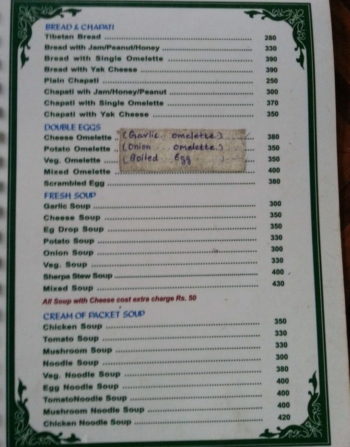 BREAD & CHAPATI
Tibetan Bread 280
Bread with Jam/Peanut/Honey 330
Bread with Single Omelette 380
Bread with Yak Cheese 390
Plain Chapati 250
Chapati wih Jam/Honey/Peanut 300
Chapati with Single Omelette 370
Chapati with Yak Cheese 350
DOUBLE EGGS
Cheese Omelette (Garlic omelette) 380
Potato Omelette (Onion omelette) 350
Veg. Omelette (Boiled Egg) 350
Mixed Omelette 400
Scrambled Egg 380
FRESH SOUP
Garlic Soup 300
Cheese Soup 350
Eg Drop Soup 350
Potato Soup 330
Onion Soup 300
Veg. Soup 330
Sherpa Stew Soup 400
Mixed Soup 430
All Soup with Cheese cost extra charge Rs. 50
CREAM OF PACKET SOUP
Chicken Soup 350
Tomato Soup 330
Mushroom Soup 330
Noodle Soup 300
Veg. Noodle Soup 380
Egg Noodle Soup 400
TomatoNoodle Soup 400
Mushroom Noodle Soup 400
Chicken Noodle Soup 420